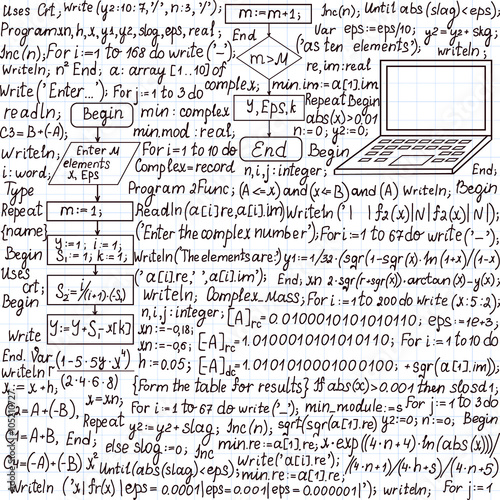 Uses Crt; Write(y2:10:7,'/', n:3,'/');
m:=m+1;
Inc(n); Until abs(slag)<eps);
Program xn, h, x, y1, y2, slog, eps, real;
Var eps:=eps/10; y2=y2+skg;
End;
('as ten elements'); writeln;
Inc(n); For i:=1 to 168 do write('-');
m>M
Writeln; n² End; a: array [1..10] of
re,im:real
Write ('Enter...'); For j:=1 to 3 do
complex;
min.im:=a[1].im
readln;
Begin
min: complex
y, Eps, k
Repeat Begin
abs(x)>0.01
C3=B+(-A);
min.mod:real;
n:=0; y2:=0;
Writeln;
Enter M
elements
x, Eps
For i:=1 to 10 do
End
Begin
i:word;
Complex=record
n,i,j:integer;
End;
Type
Program 2Func; (A<=x) and (x<=B) and (A) Writeln; Begin
Repeat
m:=1;
Readln(a[i]re,a[i].im) Writeln('| | f2(x)|N|f2(x)|N|);
{name}
('Enter the complex number'); For i:=1 to 67 do write('-');
Begin
y:=1; i:=1;
S₁:=1; k:=1;
Writeln('The elements are:') y1:=1/32·(sgr(1-sgr(x)·ln(1+x)/(1-x)
Uses
crt;
('a[i].re,' ','a[i].im'); End; xn 2·sgr(r+sgr(x))·arctan(x)-y(x);
S₂=i/(i+1)·(-S₁)
Begin
Writeln; Complex_mass; For i:=1 to 200 do write (x:5:2);
n,i,j:integer;
[A]rc=0.01000101010110; eps:=1e+3;
Write
Y:=Y+S₁·x[k]
xn:=-0,18;
xn:=-0,6;
[A]rc=1.01000101010110110; For i:=1 to 10 do
End. Var
(1-5·5y·x⁴)
h:=0.05;
[A]dc=1.0101010001000100; +sgr(a[1].im));
writeln r
x:=x+h;
(2·4·6·8)
{Form the table for results} If abs(x)>0.001 then slosd1;
x:=xn;
C2=A+(-B),
For i:=1 to 67 do write('-'); min_module:=s For j:=1 to 3 do
Repeat y2:=y2+slag; Inc(n); sqrt(sqr(a[1].re) y2:=0; n:=0; Begin
C1=A+B,
End;
else slog:=0;
min.re:=a[1].re; x·exp((4·n+4)·ln(abs(x)))/
C4=(-A)+(-B) x²
Until(abs(slag)<eps);
write('a[i].re');
min.re:=a[1].re;
/(4·n+1)/(4·n+5)/(4·n+5)
Writeln ('x|fr(x)|eps=0.0001|eps=0.0001|eps=0.000001'); For j:=1